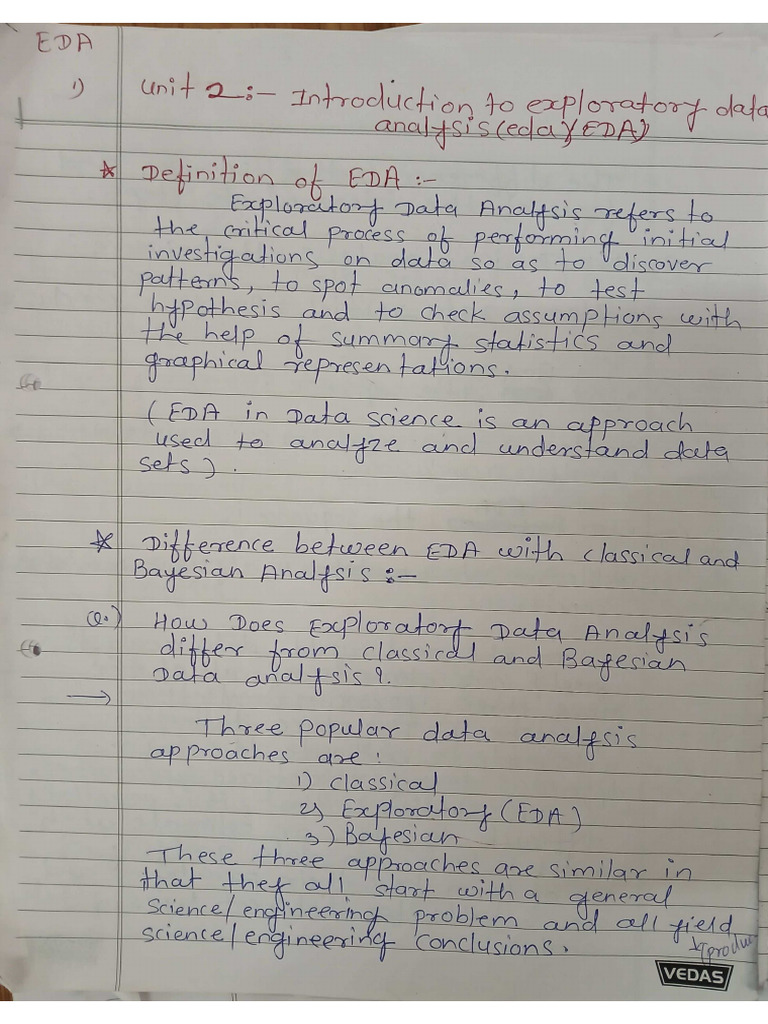 EDA
1) Unit 2:- Introduction to exploratory data
analysis(eda)(EDA)
* Definition of EDA :-
Exploratory Data Analysis refers to
the critical process of performing initial
investigations on data so as to discover
patterns, to spot anomalies, to test
hypothesis and to check assumptions with
the help of summary statistics and
graphical representations.
(EDA in Data science is an approach
used to analyze and understand data
sets).
* Difference between EDA with classical and
Bayesian Analysis :-
Q.) How Does Exploratory Data Analysis
differ from classical and Bayesian
Data analysis?
→
Three popular data analysis
approaches are:
1) classical
2) Exploratory (EDA)
3) Bayesian
These three approaches are similar in
that they all start with a general
science/engineering problem and all yield
science/engineering conclusions.
VEDAS